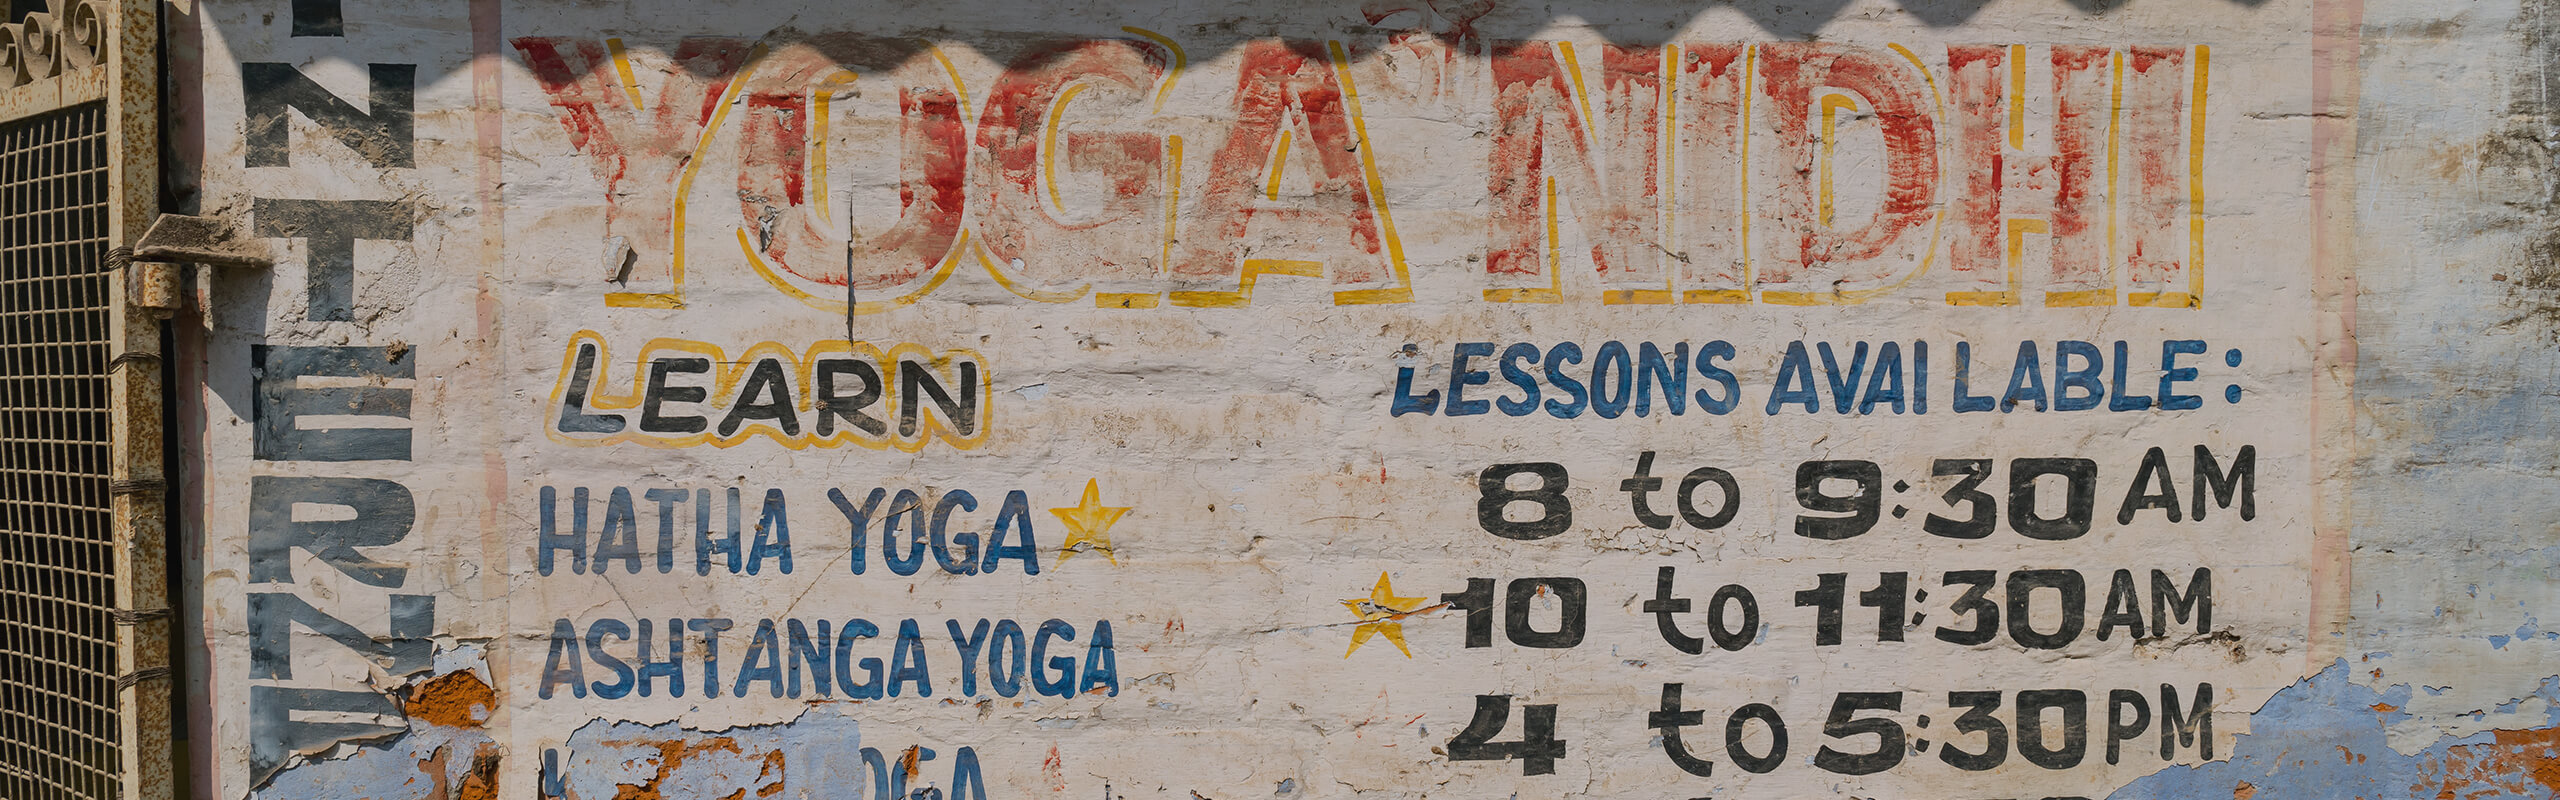 YOGA NIDHI
LEARN
HATHA YOGA
ASHTANGA YOGA
LESSONS AVAILABLE:
8 to 9:30 AM
10 to 11:30 AM
4 to 5:30 PM